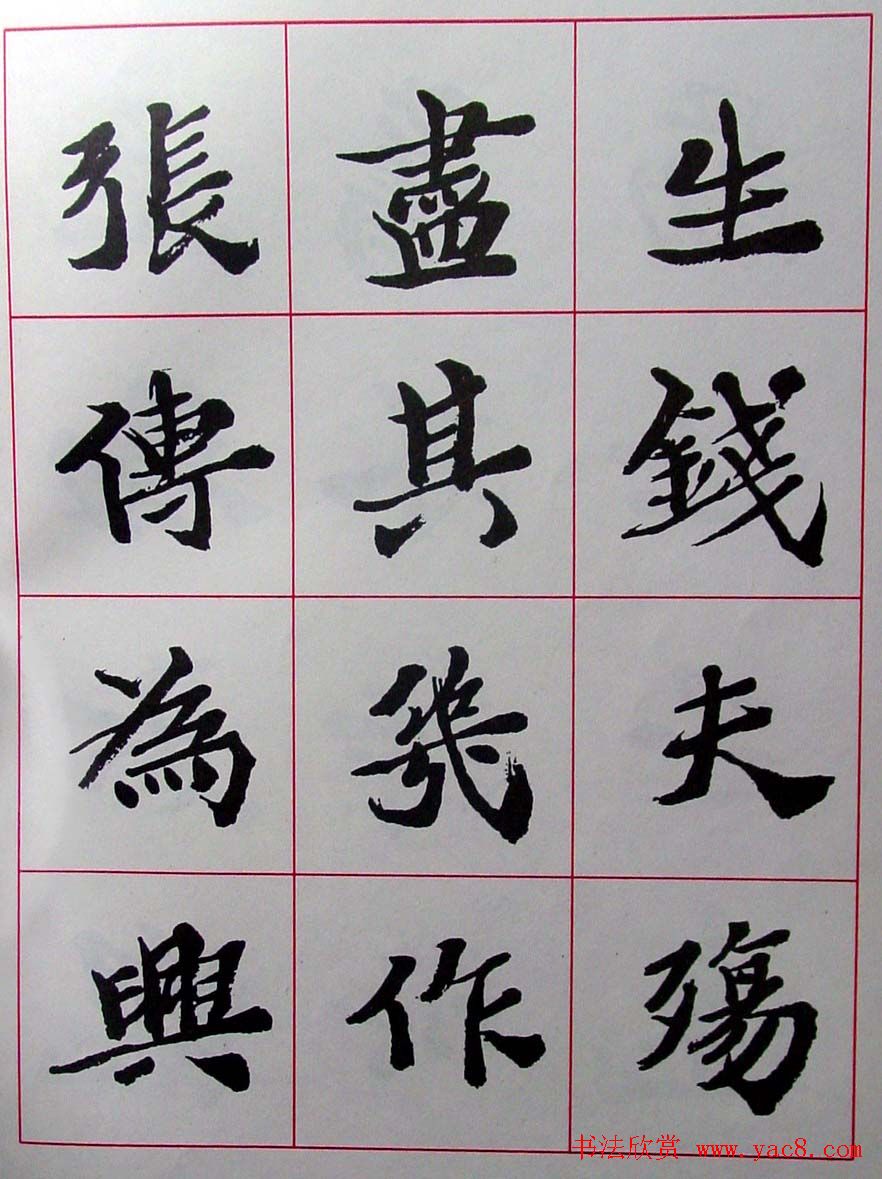 生錢夫殤
盡其作
張傳為興
书法欣赏 www.yac8.com